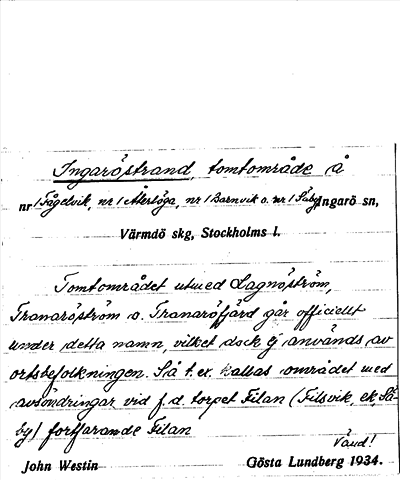 Ingaröstrand, tomtområde å
nr 1 Fågelvik, nr 1 Återlöga, nr 1 Barnvik o. nr 1 Säby Ingarö sn,
Värmdö skg, Stockholms l.
Tomtområdet utmed Lagnöström,
Tranaröström o. Tranaröfjärd går officiellt
under detta namn, vilket dock ej används av
ortsbefolkningen. Så t. ex. kallas området med
avsöndringar vid f. d. torpet Filan (Filsvik, ek, Sä-
by) fortfarande Filan
Vänd!
John Westin
Gösta Lundberg 1934.